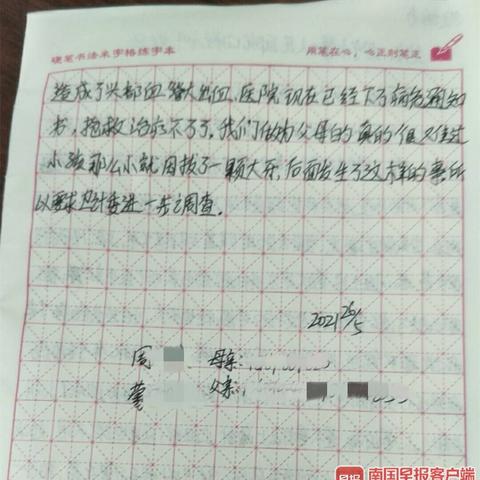 硬笔书法米字格练字本 用笔在心，心正则笔正
造成了头部血管大出血，医院现在已经下了病危通知
书，抢救治疗不了了。我们做为父母的真的很难过
小孩那么小就因拔了一颗大牙，后面发生了这样的事，所
以要求卫计委进一步之调查。
2021 26/5
周 母亲:
父亲:
南国早报客户端